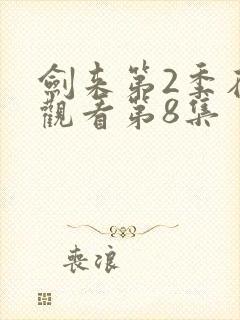 劍来第2季在
觀看第8集
喪浪